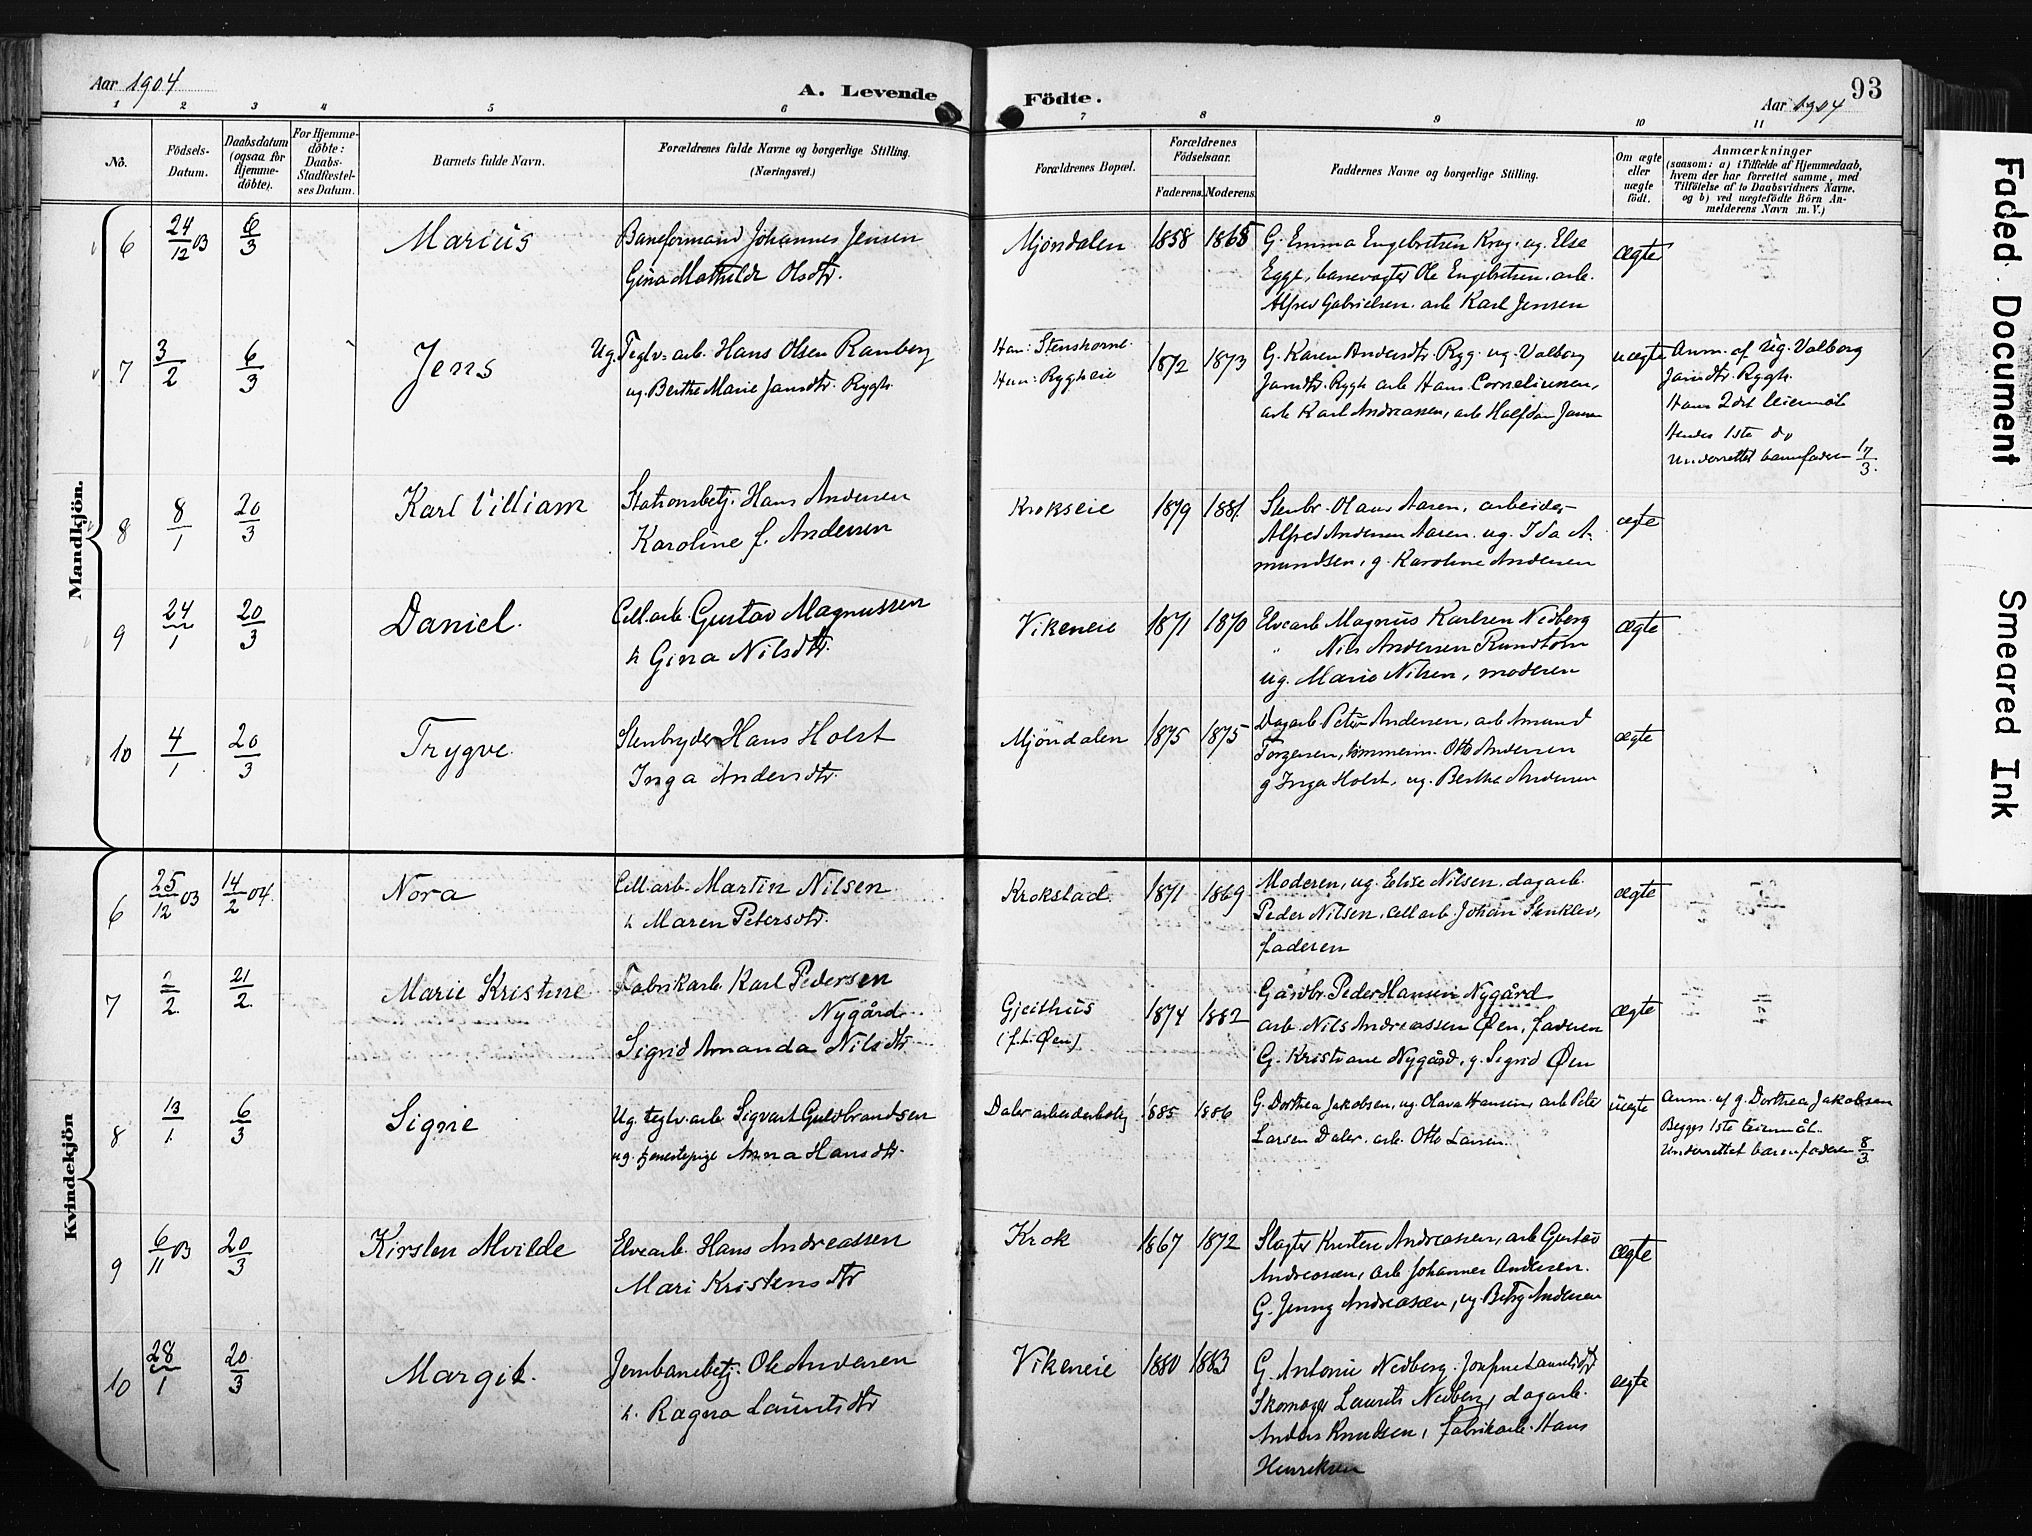 Aar 1904
A. Levende
Födte.
93
Aar 1904
1 2 3 4 5 6 7 8 9 10 11
No.
Födsels-Datum.
Daabsdatum (ogsaa for Hjemme-döbte).
For Hjemme-döbte: Daabs-Stadfæstel-ses Datum.
Barnets fulde Navn.
Forældrenes fulde Navne og borgerlige Stilling. (Næringsvei.)
Forældrenes Bopæl.
Forældrenes Födselsaar.
Faderens. Moderens.
Faddernes Navne og borgerlige Stilling.
Om ægte eller uægte födt.
Anmærkninger
(saasom: a) i Tilfælde af Hjemmedaab,
hvem der har forrettet samme, med
Tilföielse af to Daabsvidners Navne.
og b) ved uægtefödte Börn An-
melderens Navn m. V.)
Mandkjön.
6 24/12 03 6/3 Marius
Baneformand Johannes Jensen
Gina Mathilde Olsdtr.
Mjöndalen 1858 1865
G. Emma Engebretsen Krog. ug. Else
Egge, banevagter Ole Engebretsen. arb.
Alfred Gabrielsen. arb Karl Jensen
ægte
7 3/2 6/3 Jens
Ug. Teglv. arb. Hans Olsen Ramberg
ug. Berthe Marie Jansdtr. Rygh
Han: Stenshorne
Hun: Rygheie
1872 1873
G. Karen Andersdtr Rygg. ug. Valborg
Jansdtr. Rygh arb Hans Corneliussen,
arb Karl Andreassen, arb Halfdan Jansen
uægte
Anm. af ug. Valborg
Jansdtr. Rygh.
Hans 2det leiermål
Hendes 1ste do
Underrettet barnefaderen 17/3.
8 8/1 20/3 Karl Villiam
Stationsbetj. Hans Andersen
Karoline f. Andersen
Krokseie 1879 1881
Stenbr. Olaus Aasen, arbeider
Alfred Andersen Aasen. ug. Ida A-
mundsen, g. Karoline Andersen
ægte
9 24/1 20/3 Daniel.
Cell.arb. Gustav Magnussen
h Gina Nilsdtr.
Vikeneie 1871 1870
Elvearb Magnus Karlsen Nedberg
" Nils Andersen Rundtom
ug. Marie Nilsen, moderen
ægte
10 4/1 20/3 Trygve.
Stenbryder Hans Holst
Inga Andersdtr.
Mjöndalen 1875 1875
Dagarb Peter Andersen, arb Amund
Torgersen, tömmerm. Otto Andersen
g Inga Holst, ug. Berthe Andersen
ægte
Kvindekjön
6 25/12 03 14/2 04. Nora
Cell.arb. Martin Nilsen
h Maren Petersdtr.
Krokstad. 1871 1869
Moderen, ug. Elise Nilsen. dagarb.
Peder Nilsen. cellarb. Johan Stenklev,
faderen
ægte
7 2/2. 21/2. Marie Kristine
Fabrikarb. Karl Pedersen
Nygård.
Sigrid Amanda Nilsdtr
Gjeithus
(f.t. Øen)
1874 1882
Gårdbr. Peder Hansen Nygård
arb. Nils Andreassen Øen, faderen
G. Kristiane Nygård, g. Sigrid Øen
ægte
8 13/1. 6/3 Signe
Ug. teglv. arb Sigvart Guldbrandsen
ug. tjenestepige Anna Hansdtr.
Daler arbeiderbolig 1885 1886
G. Dorthea Jakobsen, ug. Olava Hansen, arb Peter
Larsen Daler. arb. Otto Larsen.
uægte
Anm. af g. Dorthea Jakobsen
Begges 1ste leiermål.
Underrettet barnefaderen 8/3
9 6/11 03 20/3 Kirsten Alvilde
Elvearb. Hans Andreassen
Mari Kristensdtr
Krok 1867 1872
Slagter Kristen Andreassen, arb Gustav
Andreassen, arb Johannes Andersen.
G. Jenny Andreassen, ug. Betsy Andersen
ægte
10 28/1 20/3 Margit.
Jernbanebetj. Ole Andersen
h. Ragna Lauritsdtr
Vikeneie 1880 1883
G. Antonie Nedberg. Josefine Lauritsdtr
Skomager Laurits Nedberg, dagarb.
Anders Knudsen, fabrikarb. Hans
Henriksen
ægte
Faded Document
Smeared Ink